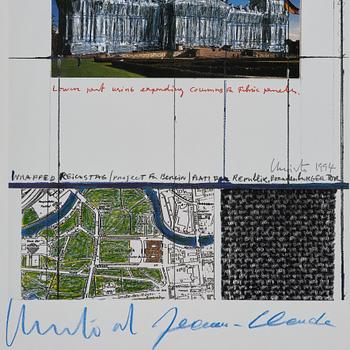 Lower part using expanding columns & Fabric panels.
Christo 1994
WRAPPED REICHSTAG / PROJECT FOR BERLIN / PLATZ DER REPUBLIK, BRANDENBURGER TOR
Christo et Jeanne-Claude